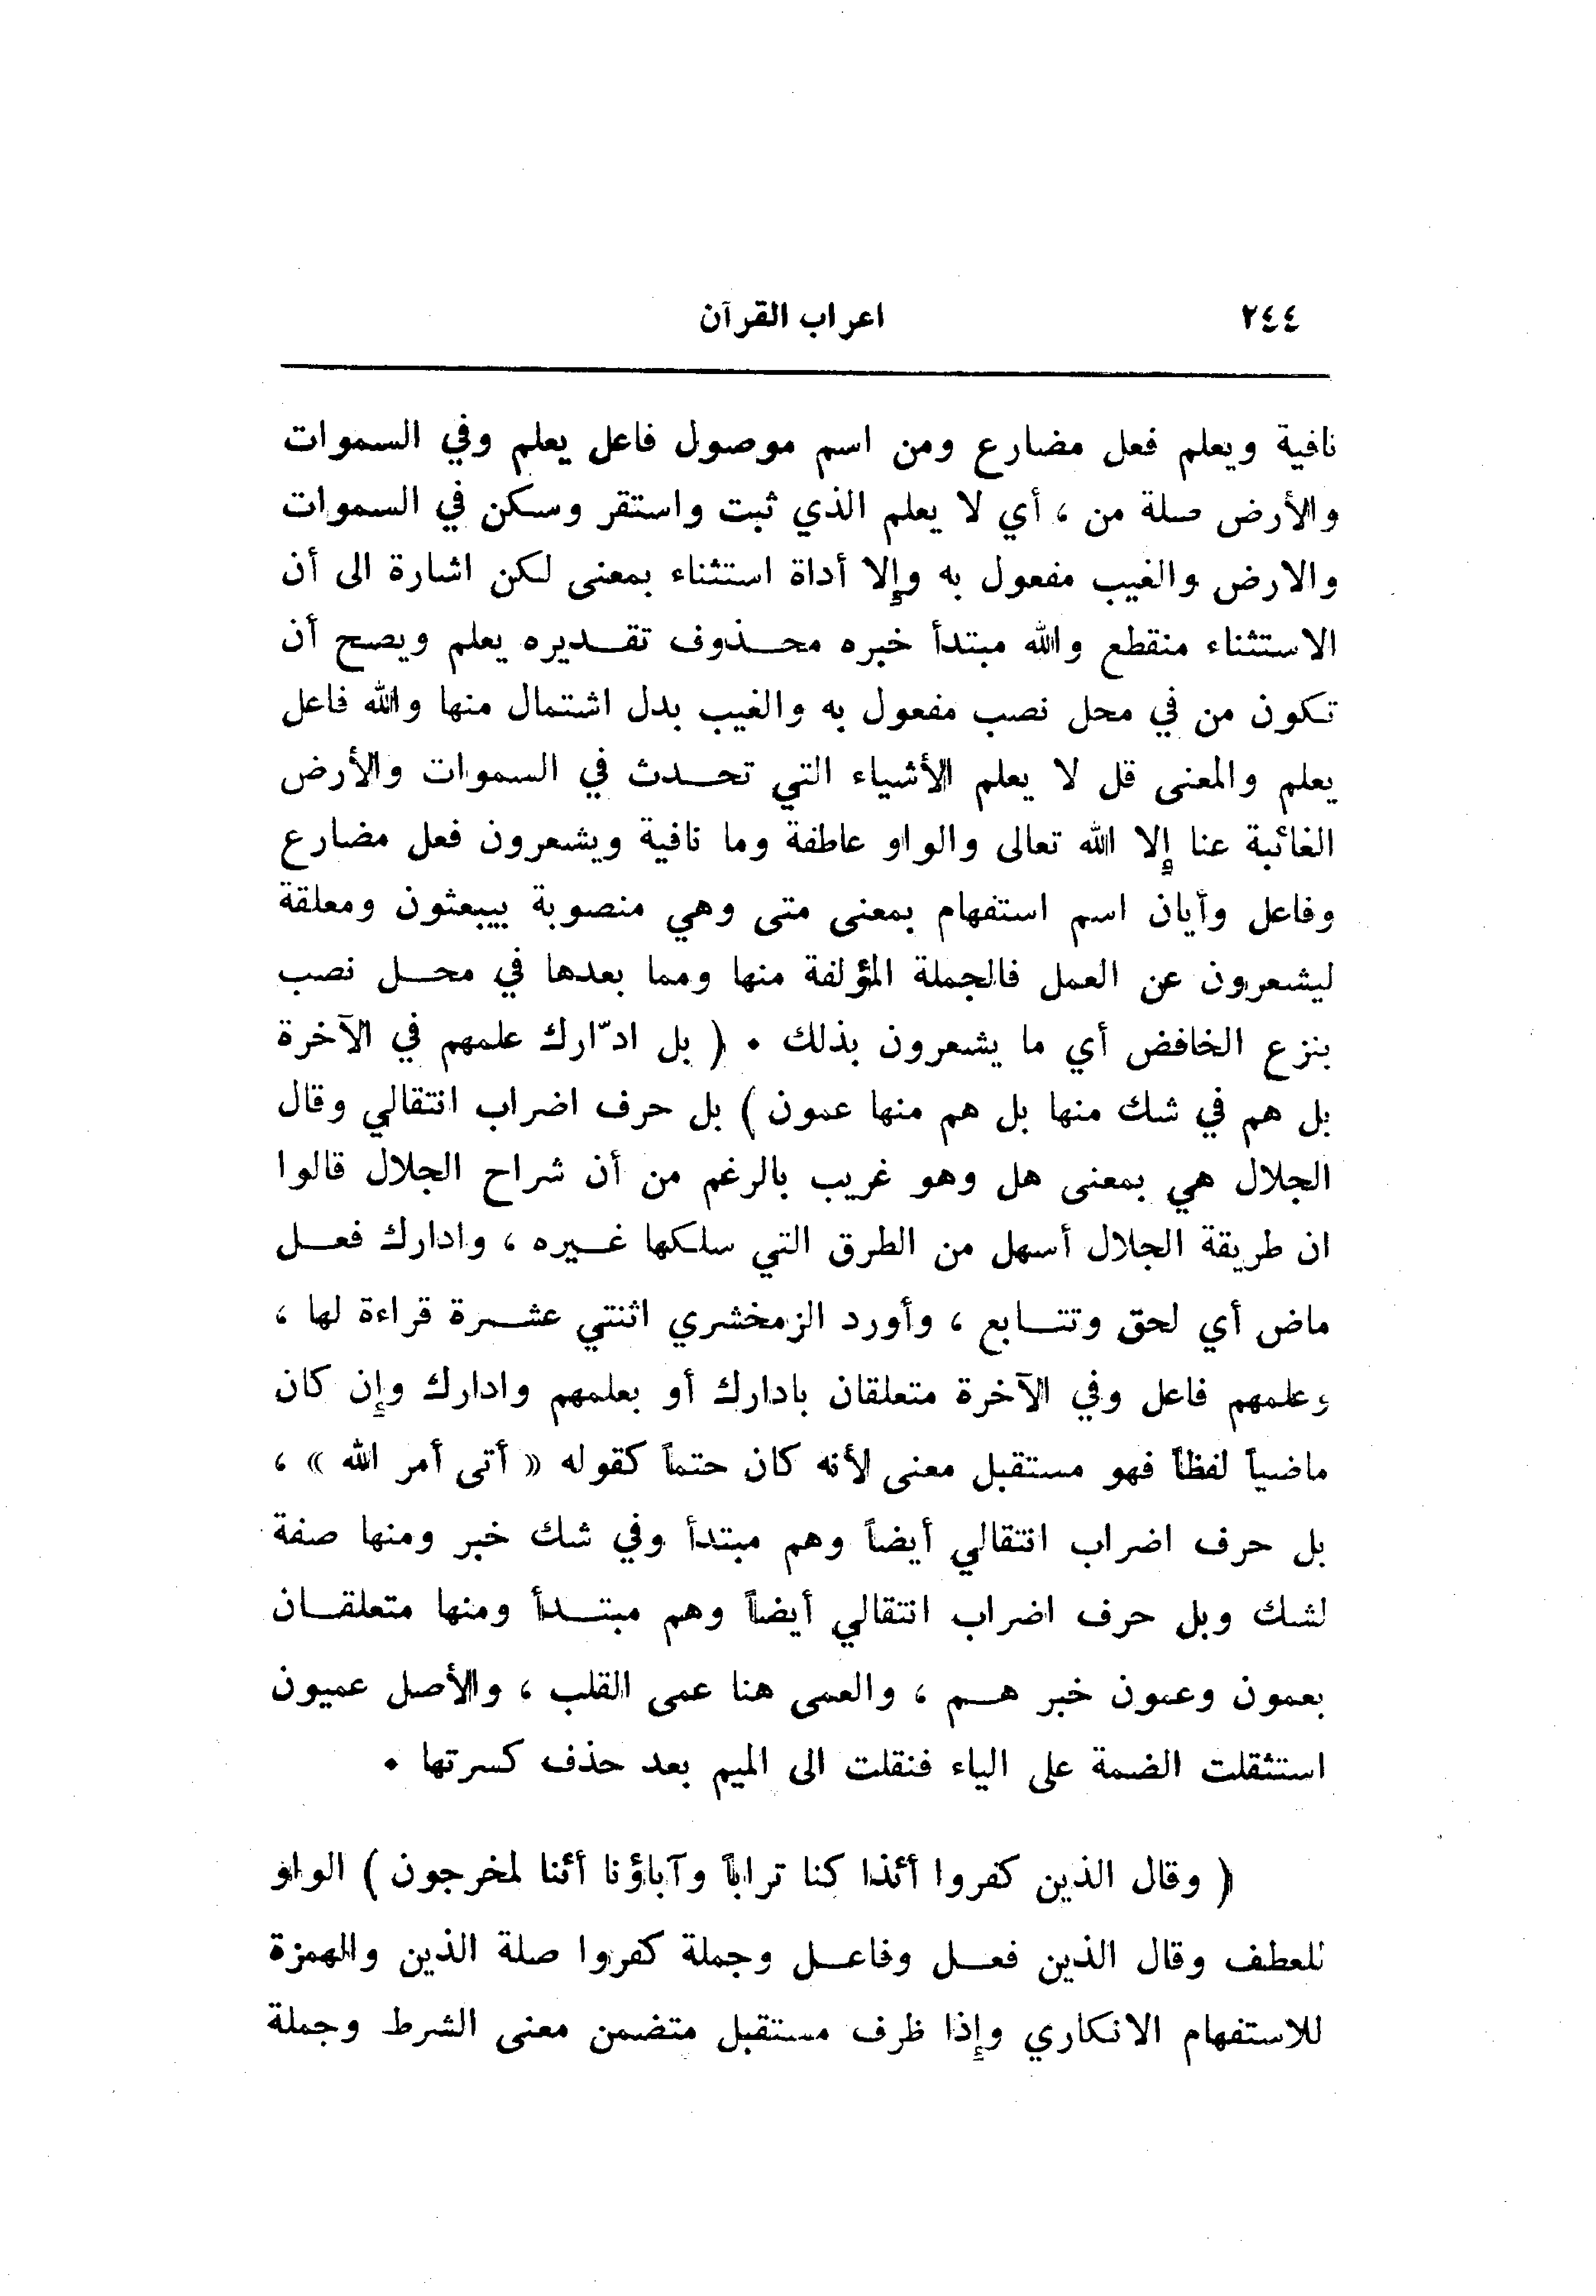 ٢٤٤ اعراب القرآن
نافية ويعلم فعل مضارع ومن اسم موصول فاعل يعلم وفي السموات
والأرض صلة من ، أي لا يعلم الذي ثبت واستقر وسكن في السموات
والارض والغيب مفعول به وإلا أداة استثناء بمعنى لكن اشارة الى أن
الاستثناء منقطع والله مبتدأ خبره محذوف تقديره يعلم ويصح أن
تكون من في محل نصب مفعول به والغيب بدل اشتمال منها والله فاعل
يعلم والمعنى قل لا يعلم الأشياء التي تحدث في السموات والأرض
الغائبة عنا إلا الله تعالى والواو عاطفة وما نافية ويشعرون فعل مضارع
وفاعل وأيان اسم استفهام بمعنى متى وهي منصوبة بيبعثون ومعلقة
ليشعرون عن العمل فالجملة المؤلفة منها ومما بعدها في محل نصب
بنزع الخافض أي ما يشعرون بذلك . ( بل ادّارك علمهم في الآخرة
بل هم في شك منها بل هم منها عمون ) بل حرف اضراب انتقالي وقال
الجلال هي بمعنى هل وهو غريب بالرغم من أن شراح الجلال قالوا
ان طريقة الجلال أسهل من الطرق التي سلكها غيره ، وادارك فعل
ماض أي لحق وتتابع ، وأورد الزمخشري اثنتي عشرة قراءة لها ،
وعلمهم فاعل وفي الآخرة متعلقان بادارك أو بعلمهم وادارك وإن كان
ماضياً لفظاً فهو مستقبل معنى لأنه كان حتماً كقوله « أتى أمر الله » ،
بل حرف اضراب انتقالي أيضاً وهم مبتدأ وفي شك خبر ومنها صفة
لشك وبل حرف اضراب انتقالي أيضاً وهم مبتدأ ومنها متعلقان
بعمون وعمون خبر هم ، والعمى هنا عمى القلب ، والأصل عميون
استثقلت الضمة على الياء فنقلت الى الميم بعد حذف كسرتها .
( وقال الذين كفروا أئذا كنا تراباً وآباؤنا أئنا لمخرجون ) الواو
للعطف وقال الذين فعل وفاعل وجملة كفروا صلة الذين والهمزة
للاستفهام الانكاري وإذا ظرف مستقبل متضمن معنى الشرط وجملة